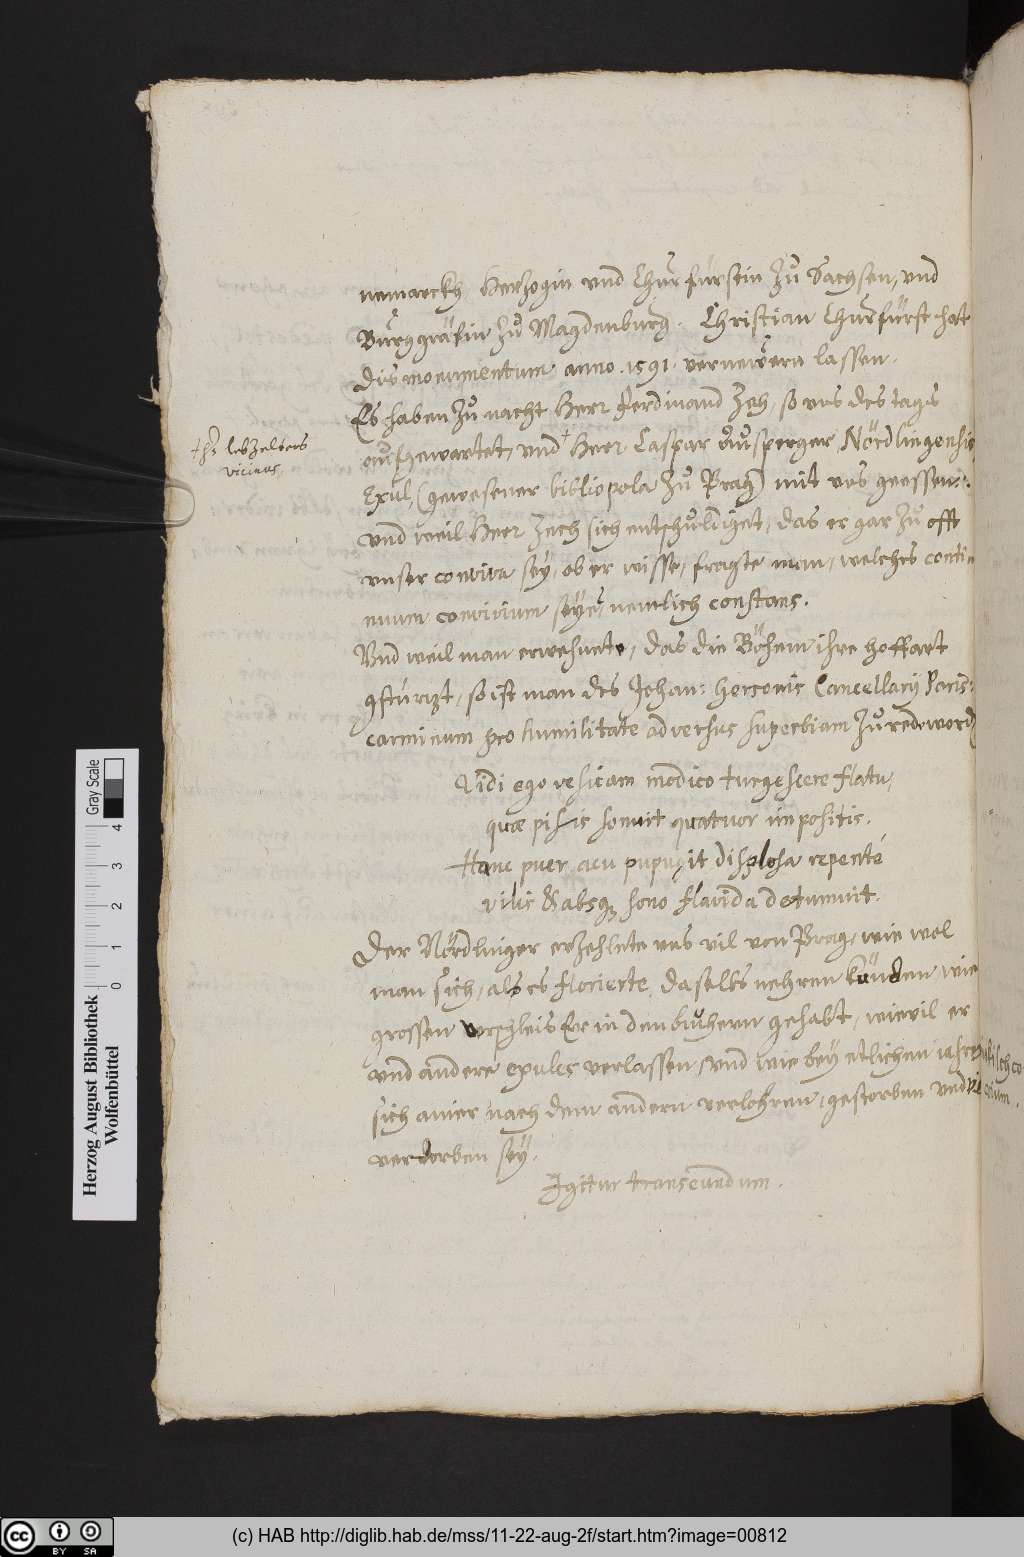 nemarckh Hertzogin vnd Churfürstin zu Sachsen, vnd
Burggräfin zu Magdenburg. Christian Churfürst hat
dis monumentum anno .1591. vernewern lassen.
Es haben zu nacht Herr Ferdinand Zeh, so vns des tags
auffgewartet, vnd † Herr Caspar Augsperger Nördlingensis
† H. lebzelters
vicinus
Exul, (gewesener bibliopola zu Prag) mit vns geessen:
vnd weil Herr Zech sich entschuldiget, das er gar zu offt
vnser conviva sey, ob er wisse, fragte man, welches conti
nuum convivium seye, nemlich constans.
Vnd weil man erwehnete, das die Böhem ihre hoffart
gsturtzt, so ist man des Johan: Gersonis Cancellarij Paris:
carminum pro humilitate adversus superbiam zu red word
Vidi ego vesicam modico turgescere flatu,
quæ pisis sonuit quatuor impositis.
Hanc puer acu pupugit displosa repente
vilis & absq3 sono flavida detumuit.
Der Nördlinger erzehlete vns vil von Prag, wie wol
man sich, als es florierte, daselbs nehren künden, wie
grossen verschleis Er in den büchern gehabt, wievil er
vnd andere exules verlassen, vnd wie bey etlichen jahren
sich einer nach dem andern verlohren, gestorben vnd
verdorben sey.
Igitur transeundum.
Herzog August Bibliothek
Wolfenbüttel
Gray Scale
0 1 2 3 4
cc BY SA
(c) HAB http://diglib.hab.de/mss/11-22-aug-2f/start.htm?image=00812